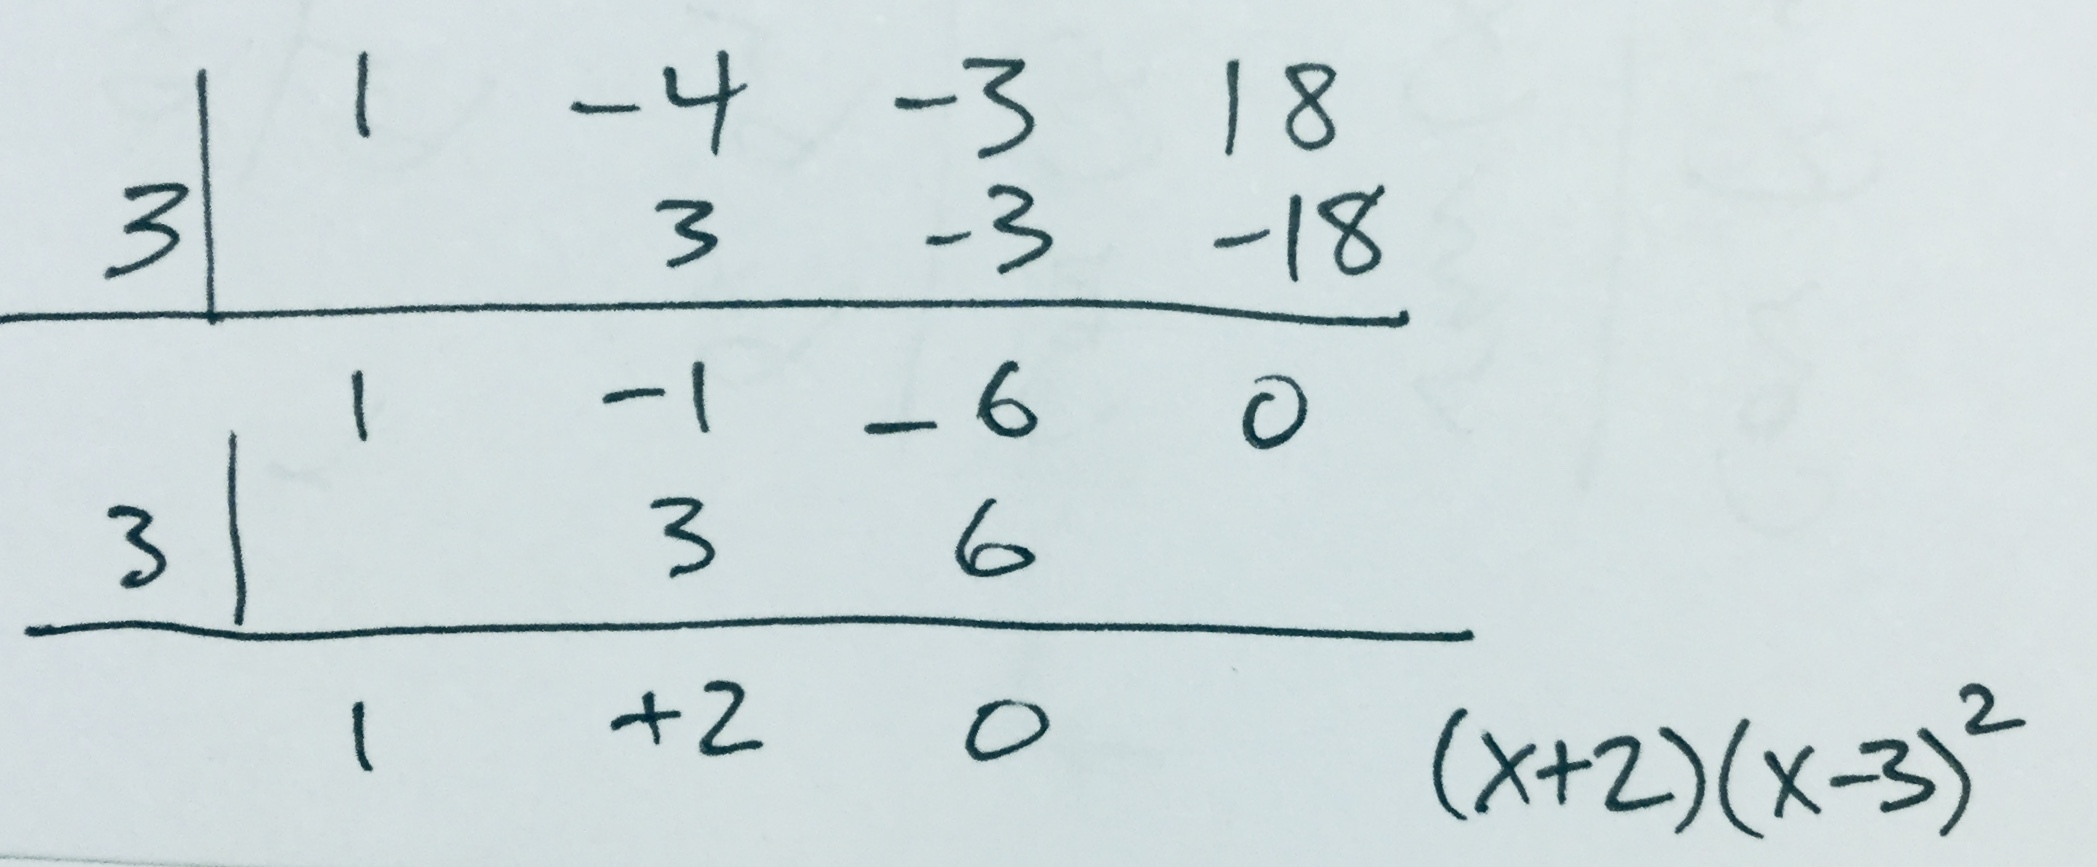 1 -4 -3 18
3 3 -3 -18
1 -1 -6 0
3 3 6
1 +2 0 (x+2)(x-3)²